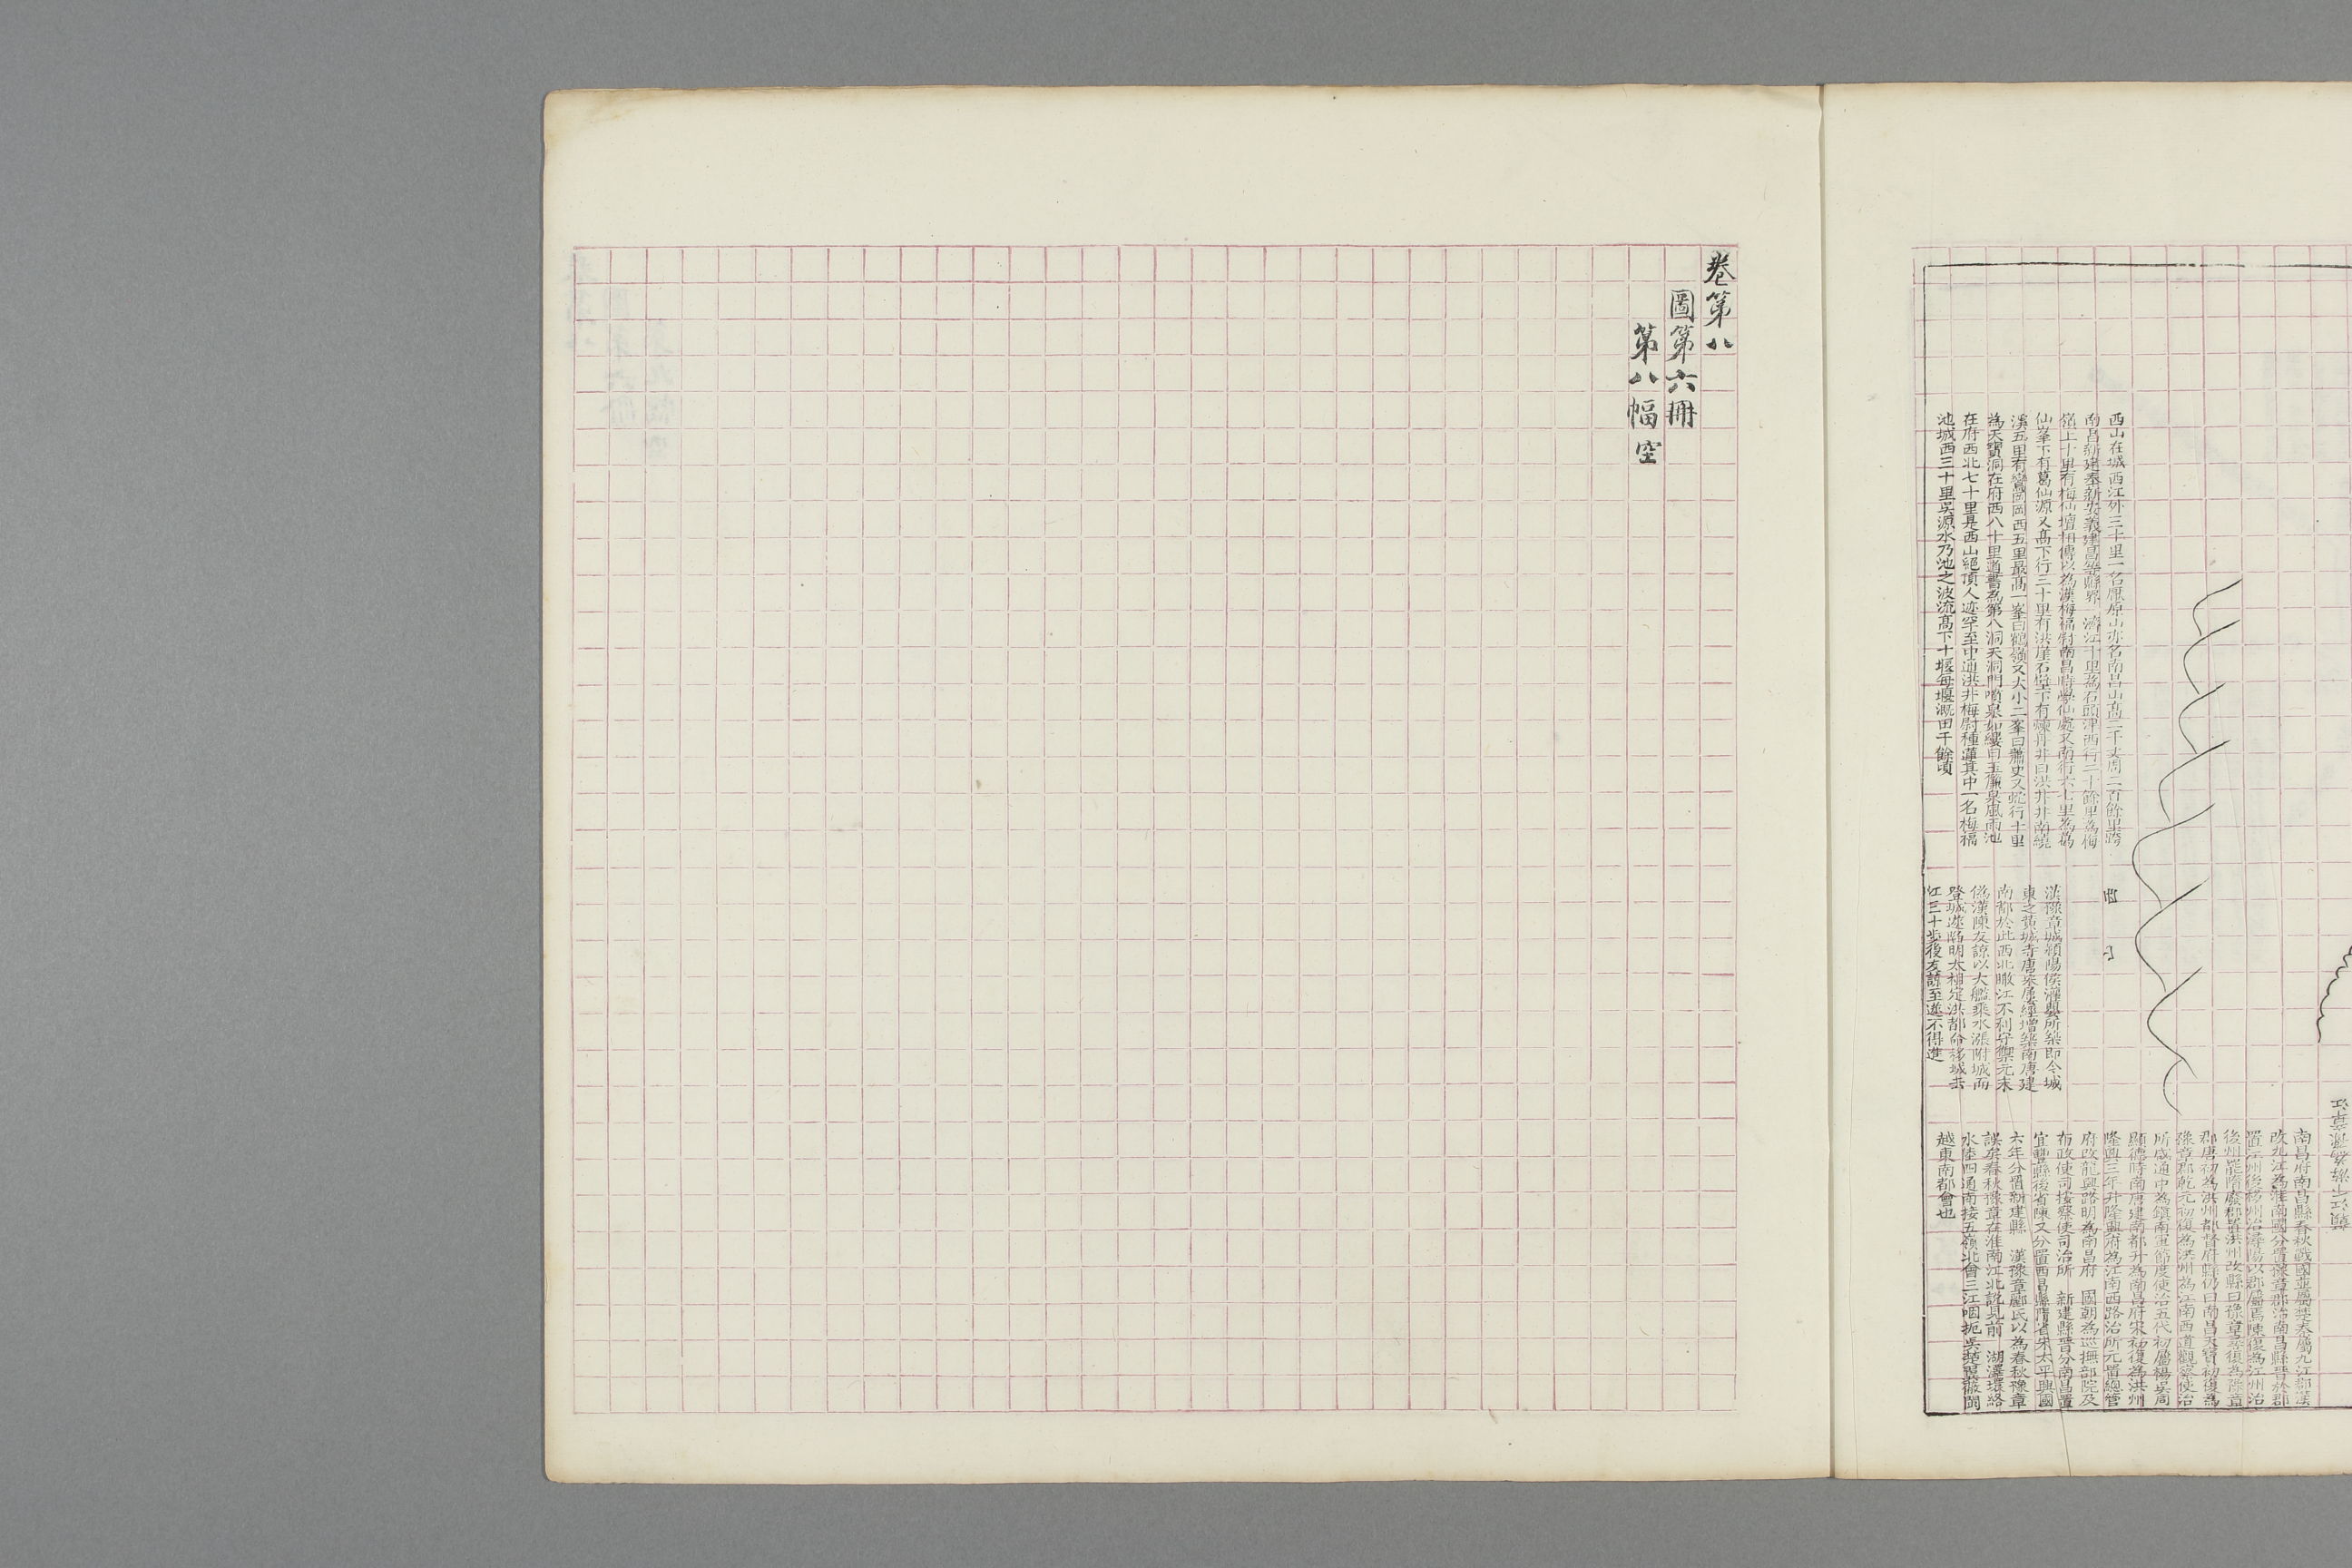 江三十步後友諒至遂不得進
西山在城西江外三十里一名厭原山亦名南昌山高二千丈周二百餘里跨
南昌新建奉新安義建昌等縣界　濟江十里為石頭津西行二十餘里為梅
嶺上十里有梅仙壇相傳以為漢梅福尉南昌時學仙處又南行六七里為葛
仙峯下有葛仙源又高下行三十里有洪崖石壁下有煉丹井曰洪井井南繞
溪五里有鸞岡岡西五里最高一峯曰鶴嶺又大小二峯曰蕭史又蛇行十里
為天寶洞在府西八十里道書為第八洞天洞門噴泉如纓曰玉簾泉風雨池
在府西北七十里是西山絕頂人迹罕至中通洪井梅尉種蓮其中一名梅福
池城西三十里吳源水乃池之波流高下十堰每堰溉田千餘頃
西山
漢豫章城潁陽侯灌嬰所築即今城
東之黃城寺唐宋屢經增築南唐建
南都於此西北瞰江不利守禦元末
偽漢陳友諒以大艦乘水漲附城而
登城遂陷明太祖定洪都命移城去
南昌府南昌縣春秋戰國並屬楚秦屬九江郡漢
改九江為淮南國分置豫章郡治南昌縣晉於郡
置江州後移州治潯陽以郡屬焉陳復為江州治
後州罷隋廢郡置洪州改縣曰豫章尋復為豫章
郡唐初為洪州都督府縣仍曰南昌天寶初復為
豫章郡乾元初復為洪州為江南西道觀察使治
所咸通中為鎮南軍節度使治五代初屬楊吳周
顯德時南唐建南都升為南昌府宋初復為洪州
隆興三年升隆興府為江南西路治所元置總管
府改龍興路明為南昌府　國朝為巡撫部院及
布政使司按察使司治所　新建縣晉分南昌置
宜豐縣後省陳又分置西昌縣隋省宋太平興國
六年分置新建縣　漢豫章酈氏以為春秋豫章
誤矣春秋豫章在淮南江北說見前　湖澤環絡
水陸四通南接五嶺北會三江咽扼吳楚翼蔽閩
越東南都會也
卷第八
圖第六冊
第八幅空